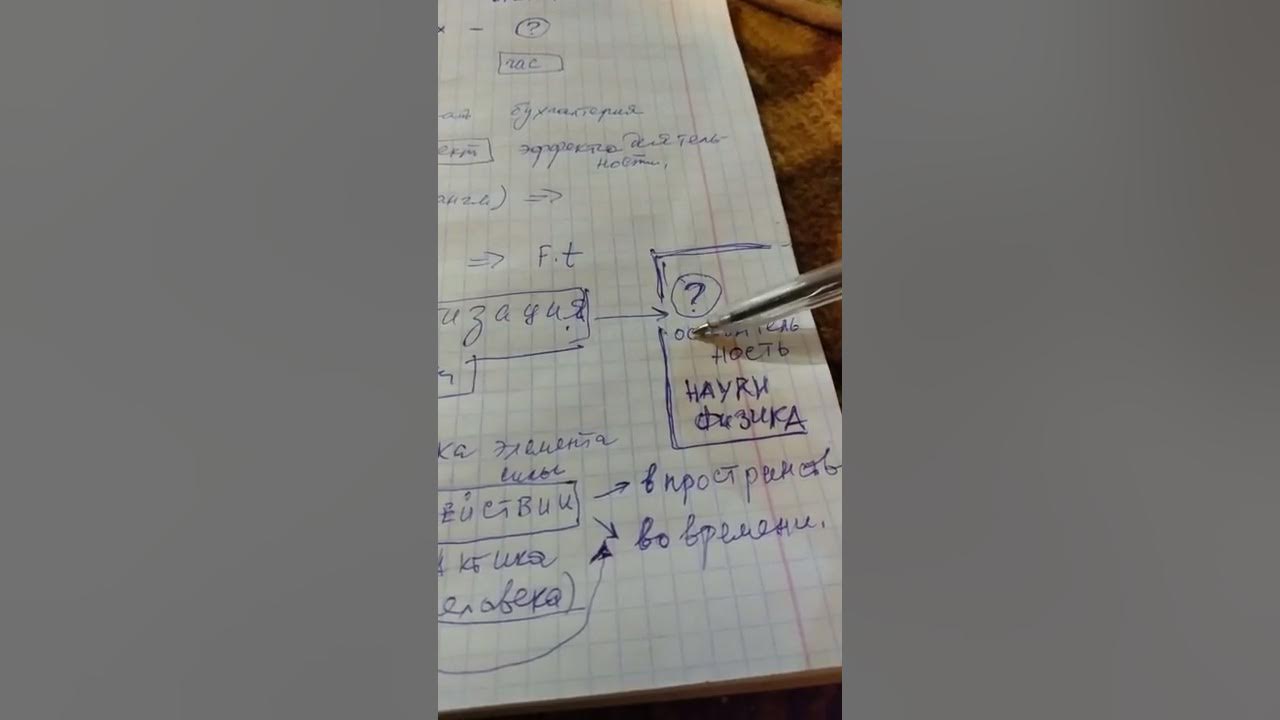 х - ?
час
бухгалтерия
ект эффект деятель-
ности.
англ) ⇒
⇒ F.t
изация
?
ность
НАУКИ
ФИЗИКА
ка элемента
силы
ействии → в пространств
во времени.
актика
еловека)